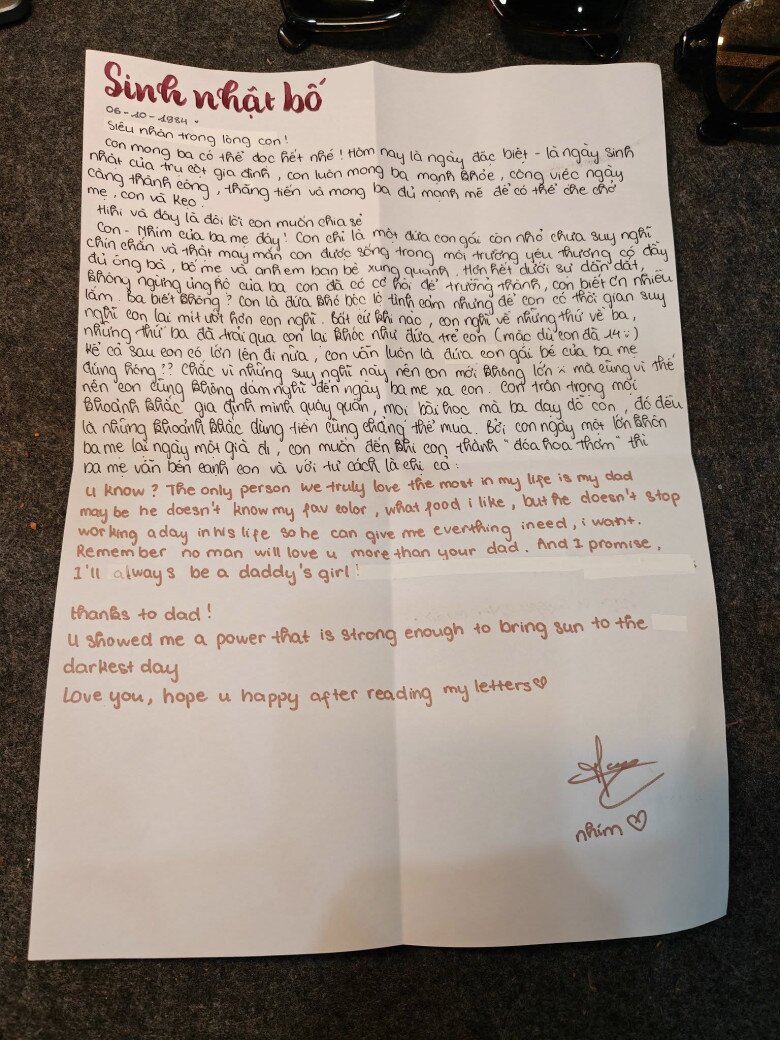 Sinh nhật bố
06-10-1984
Siêu nhân trong lòng con!
Con mong ba có thể đọc hết nhé! Hôm nay là ngày đặc biệt - là ngày sinh
nhật của trụ cột gia đình, con luôn mong ba mạnh khỏe, công việc ngày
càng thành công, thăng tiến và mong ba đủ mạnh mẽ để có thể che chở
mẹ, con và Kẹo.
Hihi và đây là đôi lời con muốn chia sẻ
Con - Nhím của ba mẹ đây! Con chỉ là một đứa con gái còn nhỏ chưa suy nghĩ
chín chắn và thật may mắn con được sống trong môi trường yêu thương có đầy
đủ ông bà, bố mẹ và anh em bạn bè xung quanh. Hơn hết dưới sự dẫn dắt,
không ngừng ủng hộ của ba con đã có cơ hội để trưởng thành, con biết ơn nhiều
lắm. Ba biết không? Con là đứa khó bộc lộ tình cảm nhưng để con có thời gian suy
nghĩ con lại mít ướt hơn con nghĩ. Bất cứ khi nào, con nghĩ về những thứ về ba,
những thứ ba đã trải qua con lại khóc như đứa trẻ con (mặc dù con đã 14 :)
Kể cả sau con có lớn lên đi nữa, con vẫn luôn là đứa con gái bé của ba mẹ
đúng hông?? Chắc vì những suy nghĩ này nên con mới không lớn :) mà cũng vì thế
nên con cũng không dám nghĩ đến ngày ba mẹ xa con. Con trân trọng mỗi
khoảnh khắc gia định mình quây quần, mọi bài học mà ba dạy dỗ con, đó đều
là những khoảnh khắc dùng tiền cũng chẳng thể mua. Bởi con ngày một lớn khôn
ba mẹ lại ngày một già đi, con muốn đến khi con thành "đóa hoa thơm" thì
ba mẹ vẫn bên cạnh con và với tư cách là chị cả:
u know? The only person we truly love the most in my life is my dad
may be he doesn't know my fav color, what food i like, but he doesn't stop
working a day in his life so he can give me everthing i need, i want.
Remember no man will love u more than your dad. And I promise,
I'll always be a daddy's girl!
thanks to dad!
u showed me a power that is strong enough to bring sun to the
darkest day
Love you, hope u happy after reading my letters♡
nhím ♡